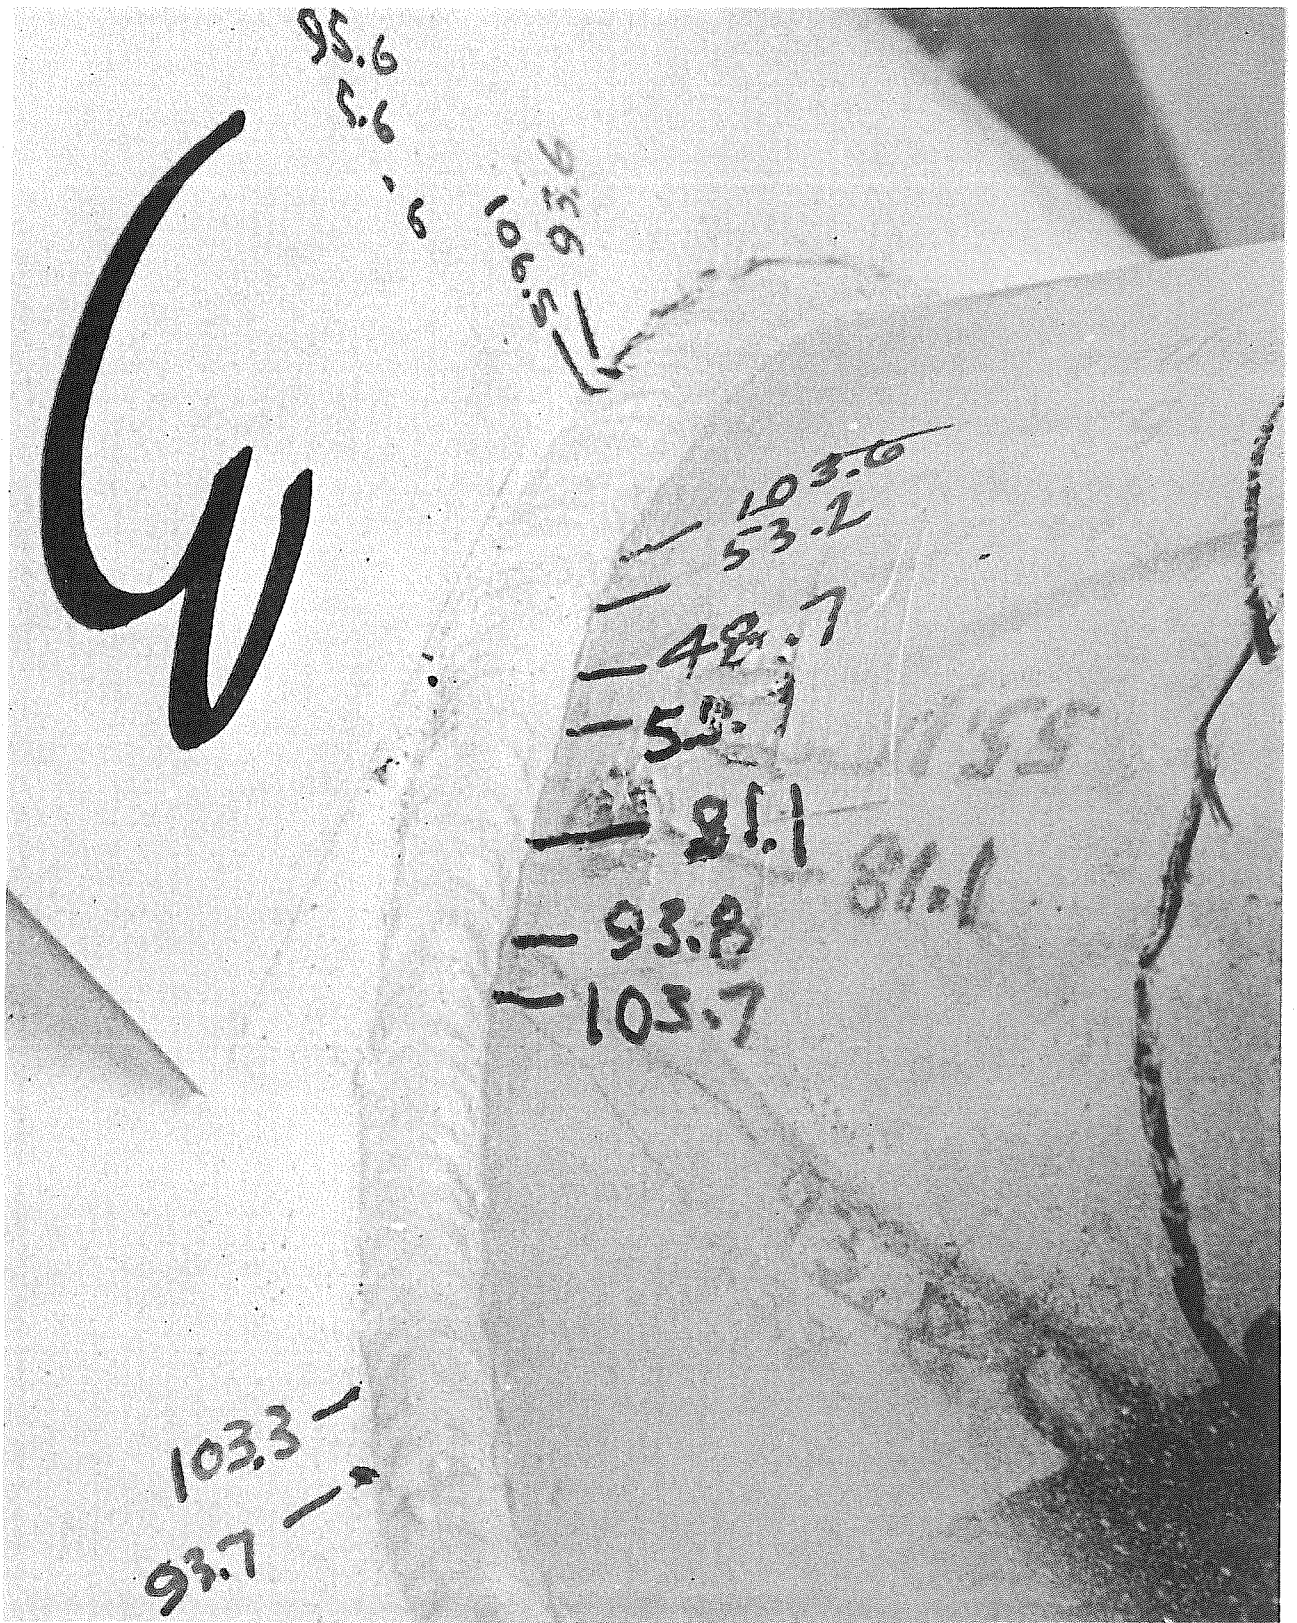 95.6
5.6
.6
93.6
106.5
103.6
53.2
48.7
81.1
81.1
93.8
103.7
103.3
93.7